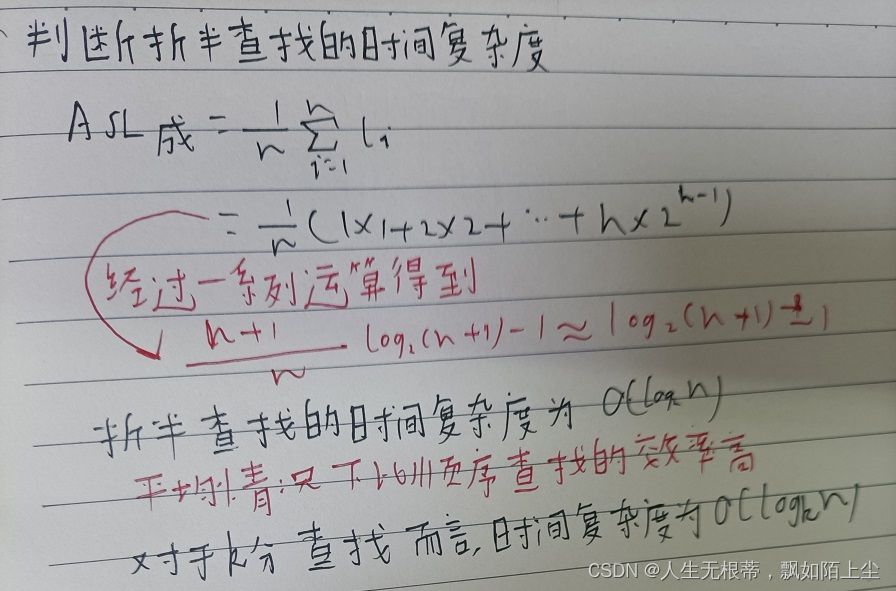 判断折半查找的时间复杂度
ASL成 = 1/n ∑_{i=1}^{n} l_i
= 1/n (1×1+2×2+…+h×2^{h-1})
经过一系列运算得到
(n+1)/n log₂(n+1)-1≈log₂(n+1)-1
折半查找的时间复杂度为 O(log₂n)
平均情况下比顺序查找的效率高
对于k分查找而言,时间复杂度为O(logₖn)
CSDN @人生无根蒂，飘如陌上尘